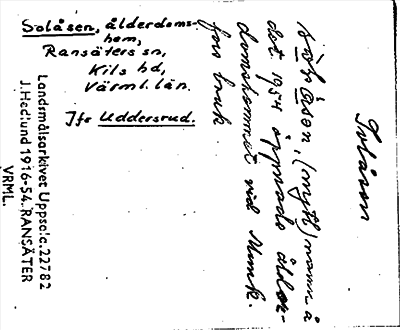 Solåsen, ålderdoms-
hem,
Ransäters sn,
Kils hd,
Värml. län.
Jfr Uddersrud.
Landsmålsarkivet Uppsala. 22782
J. Hedlund 1916-54. RANSÄTER
VRML.
Solåsen
(nytt) namn å
det 1954 öppnade ålder-
domshemmet vid Munk-
fors bruk.